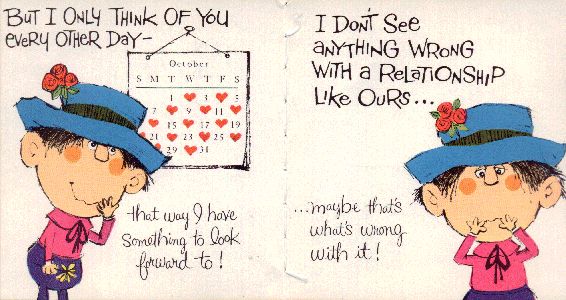 But I Only Think Of You
every Other Day-
October
S M T W T F S
1 3 5
7 9 11
15 17 19
21 23 25
29 31
that way I have
something to look
forward to!
I Don't See
anything Wrong
With a Relationship
Like Ours...
...maybe that's
what's wrong
with it!